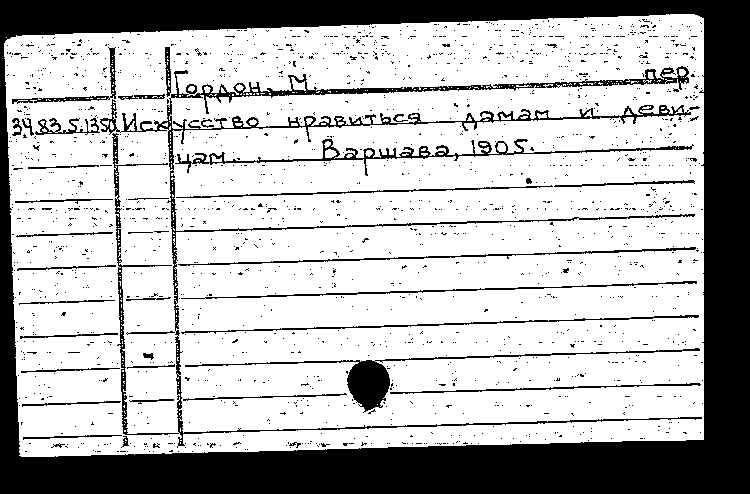 Гордон, М. пер
34.83.5.135 Искусство нравиться дамам и деви-
цам. Варшава, 1905.